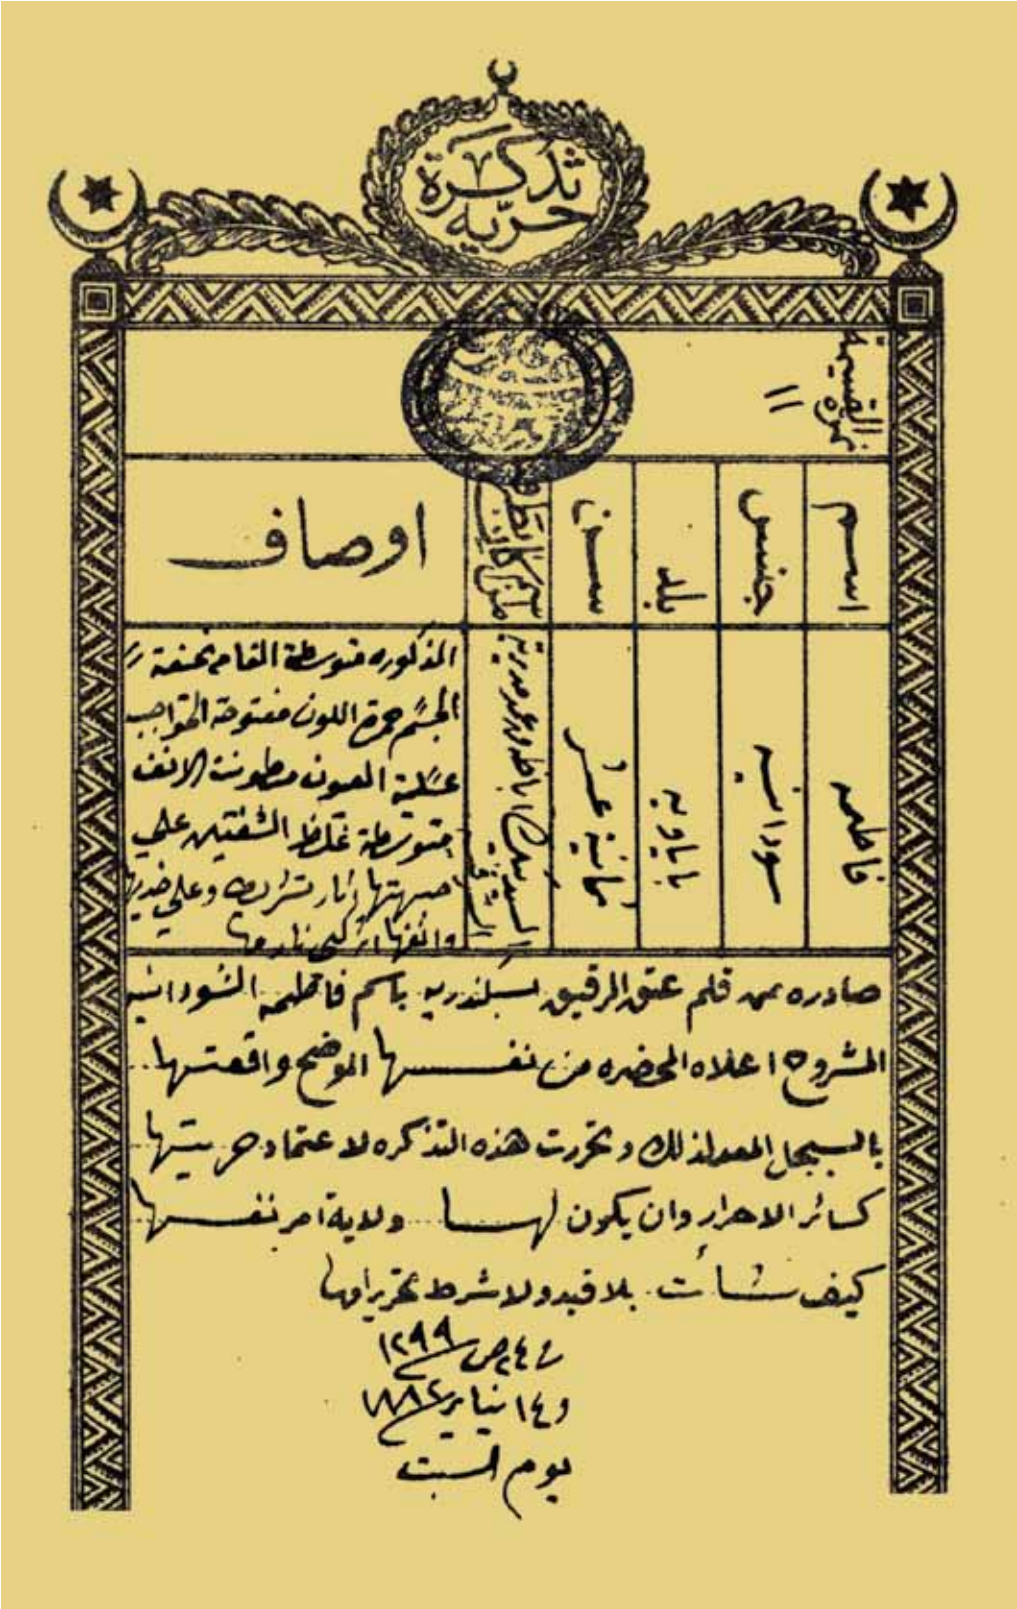 تذكرة
حرّية
نمرة القسيمة
١١
اسم
جنس
بلد
سن
اوصاف
فاطمه
سودانيه
باباويه
ثمانية عشر
المذكوره متوسطة القامه نحيفة
الجسم حمرة اللون مفتوحة الحواجب
عسلية العيون الانف
متوسطة غلظ الشفتين علي
جبهتها اثار تشريط وعلي خديها
وانفها اثر كي نار بها
صادره من قلم عتق الرقيق بسكندريه باسم فاطمه السودانيه
المشروح اعلاه المحضره من نفسها الموضح واقعتها
بالسجل المعد لذلك وتحررت هذه التذكره لاعتماد حريتها
كسائر الاحرار وان يكون لها ولاية امر نفسها
كيف شأت بلا قيد ولا شرط تحريرا فيها
٢٤ ص ١٢٩٩
و ١٤ يناير ١٨٨٢
يوم السبت